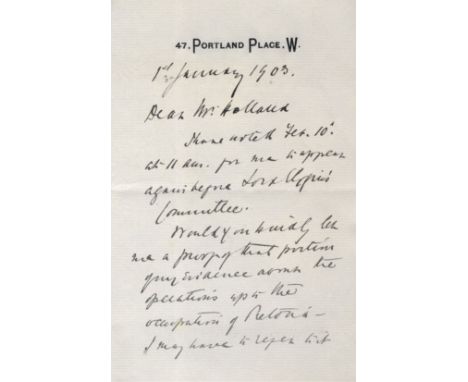 47, PORTLAND PLACE, W.
1st January 1903.
Dear Mr Holland
I have noted Feb. 10th
at 11 am. for me to appear
again before Lord Elgin's
Committee.
Would you kindly let
me a proof of that portion
of my Evidence across the
operations up to the
occupation of Pretoria —
I may have to refer to it